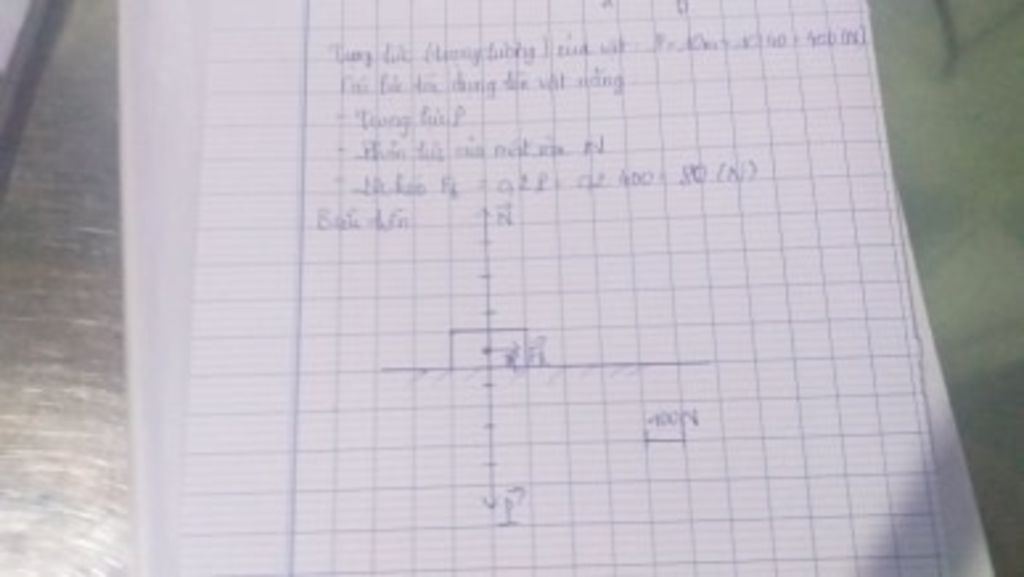 Trọng lực (trọng lượng) của vật: P = 10m = 10.40 = 400 (N)
Các lực tác dụng lên vật nặng
- Trọng lực P
- Phản lực của mặt sàn N
- Lực kéo Fk = 0,2P = 0,2.400 = 80 (N)
Biểu diễn
N
F
100N
P